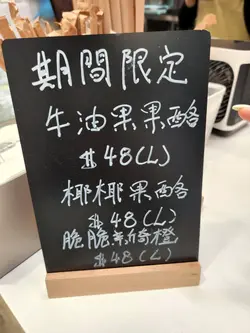 期間限定
牛油果果酪
$48(L)
椰椰果酪
$48(L)
脆脆新奇橙
$48(L)